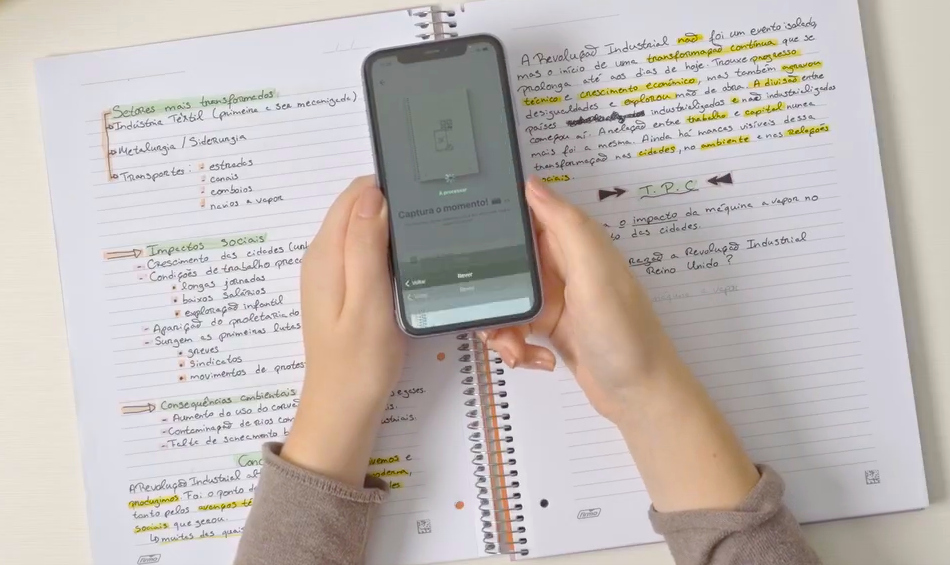 Setores mais transformados
Indústria Têxtil (primeira a ser mecanizada)
Metalurgia / Siderurgia
Transportes: estradas
canais
comboios
navios a vapor
Impactos sociais
- Crescimento das cidades
- Condições de trabalho
longas jornadas
baixos salários
exploração infantil
- Aparição do proletariado
- Surgem as primeiras lutas
greves
sindicatos
movimentos de
Consequências ambientais
- Aumento do uso do
gases.
- Contaminação de rios
- Falta de saneamento
A Revolução Industrial
e
produzimos. Foi o ponto de
tanto pelos avanços
sociais que gerou.
muitas das quais
A processar
Captura o momento!
Voltar
Rever
A Revolução Industrial não foi um evento isolado,
mas o início de uma transformação contínua que se
prolonga até aos dias de hoje. Trouxe progresso
técnico e crescimento económico, mas também agravou
desigualdades e explorou mão de obra. A divisão entre
países industrializados e não industrializados
começou aí. A relação entre trabalho e capital nunca
mais foi a mesma. Ainda há marcas visíveis dessa
transformação nas cidades, no ambiente e nas Relações
sociais.
T.P.C
o impacto da máquina a vapor no
das cidades.
a Revolução Industrial
Reino Unido?